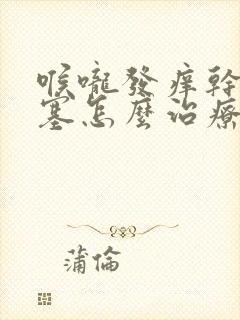 喉嚨發痒幹
塞怎麼治療
蒲倫